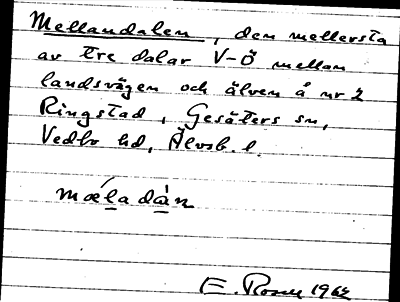 Mellandalen, den mellersta
av tre dalar V-Ö mellan
landsvägen och älven å nr 2
Ringstad, Gesäters sn,
Vedbo hd, Älvsb. l.
mǽladàn
E. 1962